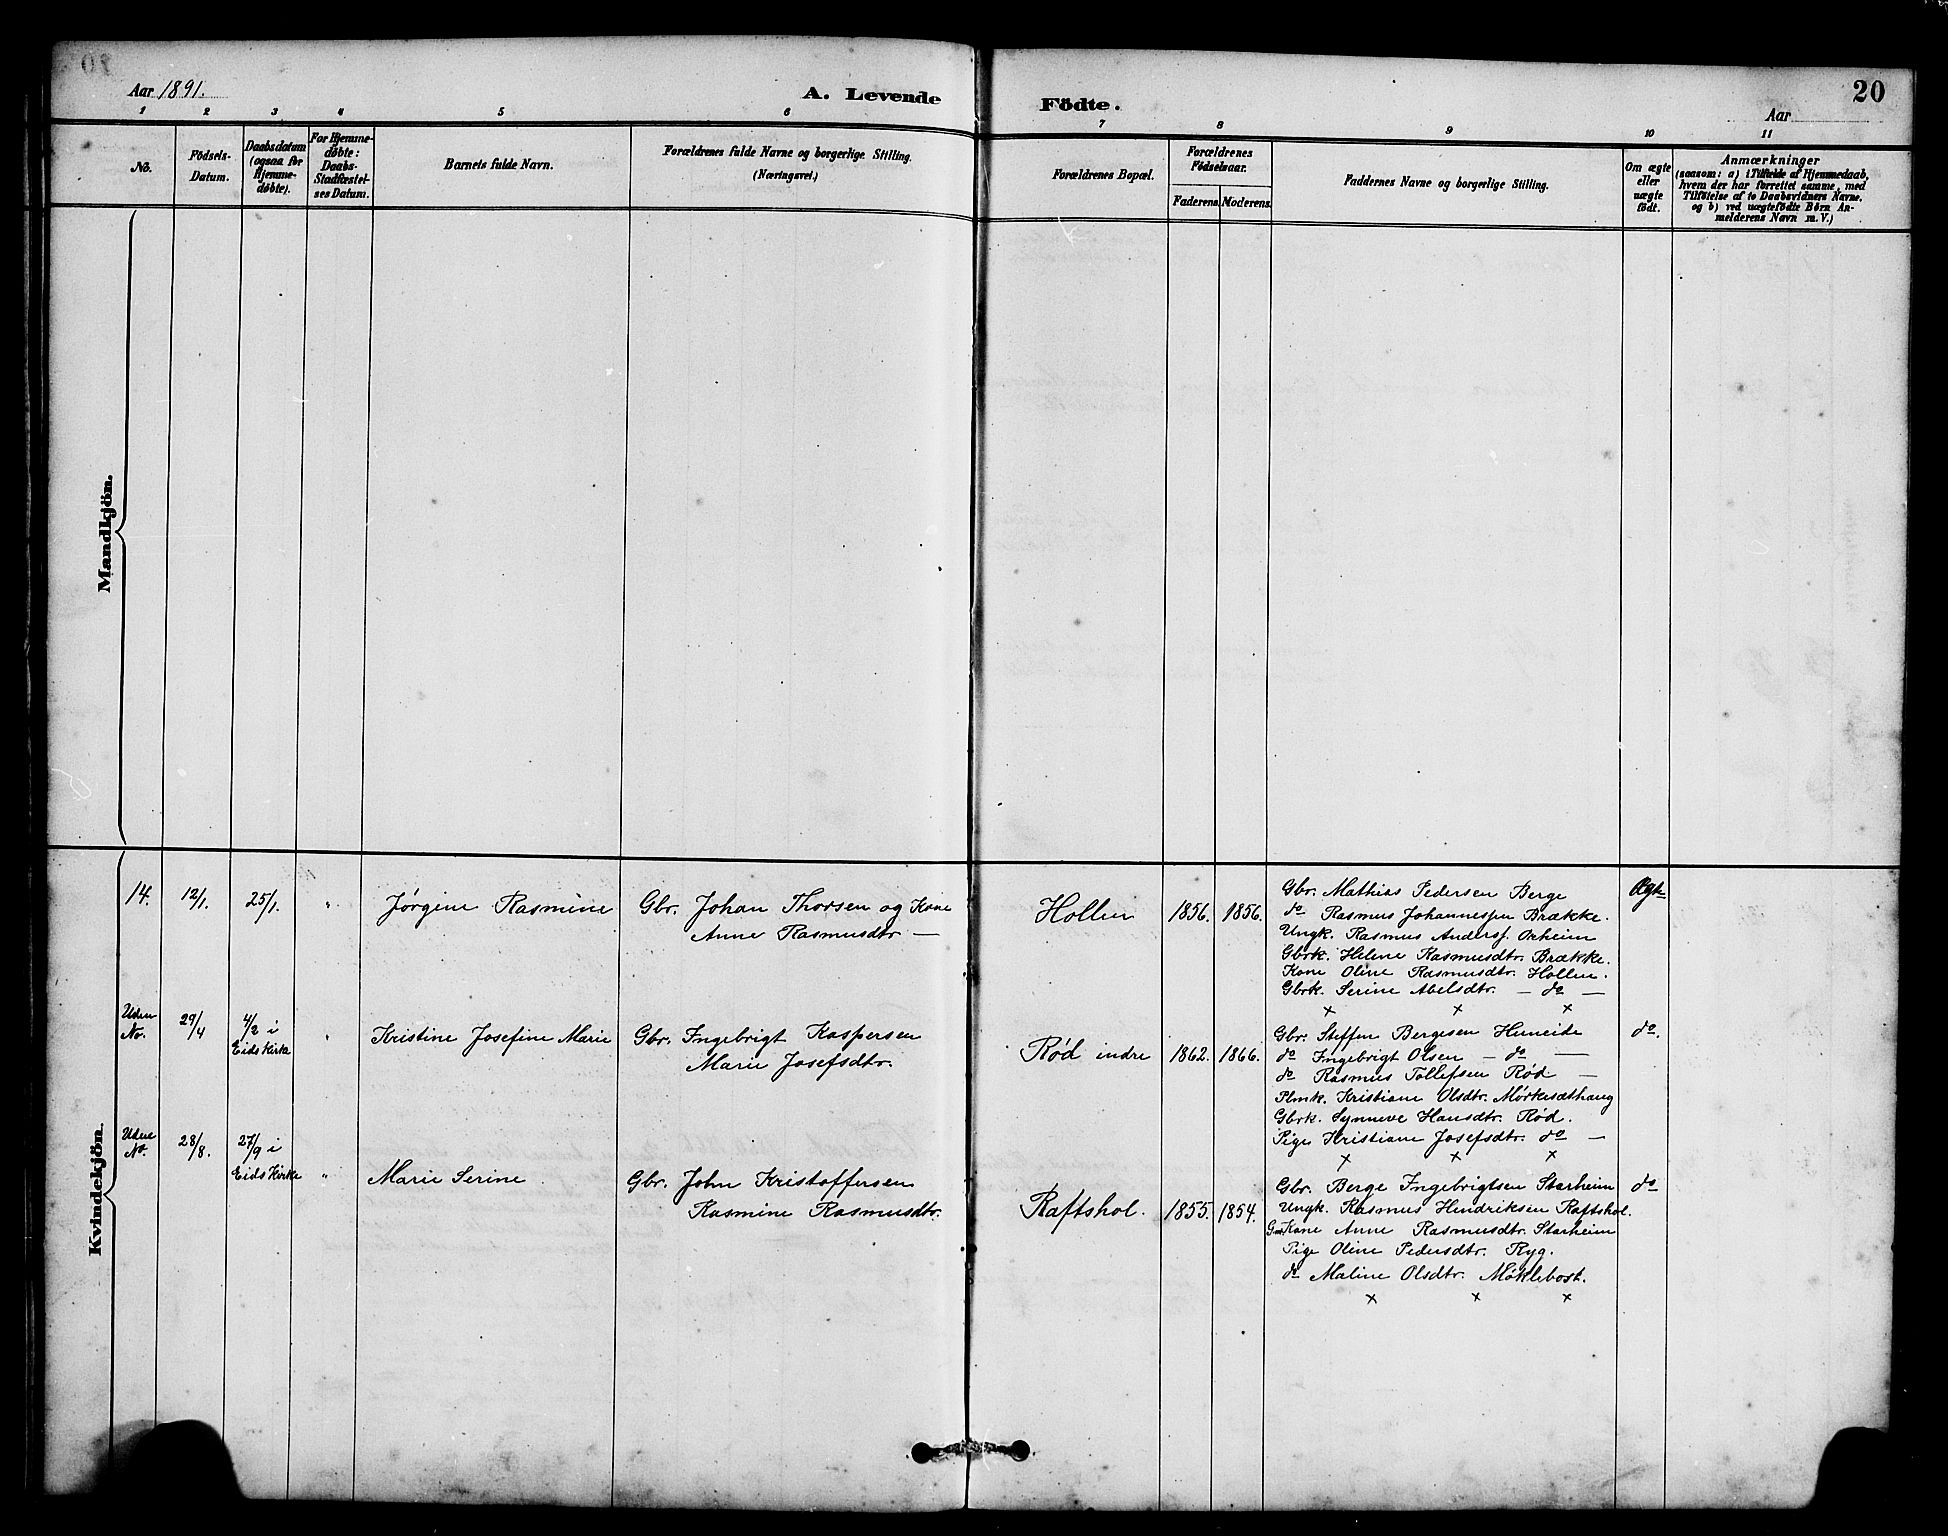 Aar 1891.
A. Levende
Födte.
Aar
20
1 2 3 4 5 6 7 8 9 10 11
No.
Födsels-
Datum.
Daabsdatum
(ogsaa for
Hjemme-
døbte).
For Hjemme-
døbte:
Daabs-
Stadfæstel-
ses Datum.
Barnets fulde Navn.
Forældrenes fulde Navne og borgerlige Stilling.
(Næringsvei.)
Forældrenes Bopæl.
Forældrenes
Födselsaar.
Faderens. Moderens.
Faddernes Navne og borgerlige Stilling.
Om ægte
eller
uægte
født.
Anmærkninger
(saasom: a) i Tilfælde af Hjemmedaab,
hvem der har forrettet samme, med
Tilföielse af to Daabsvidners Navne,
og b) ved uægtefödte Börn An-
melderens Navn m. V.)
Mandkjön.
Kvindekjön.
14. 12/1. 25/1. " Jørgine Rasmine
Gbr. Johan Thorsen og Kone
Anne Rasmusdtr —
Hollen 1856. 1856.
Gbr. Mathias Pedersen Berge
do Rasmus Johannessen Brække.
Ungk. Rasmus Anders. Orheim
Gbrk. Helene Rasmusdtr. Brække.
Kone Oline Rasmusdtr. Hollen.
Gbrk. Serine Abelsdtr. — do —
x x x
Ægte
Uden
No. 29/4 4/2 i
Eids Kirke " Kristine Josefine Marie
Gbr. Ingebrigt Kaspersen
Marie Josefsdtr.
Rød indre 1862. 1866.
Gbr. Steffen Bergesen Huneide
do Ingebrigt Olsen — do —
do Rasmus Tollefsen Rød —
Plmk. Kristiane Olsdtr. Mørkesæthaug
Gbrk. Synneve Hansdtr. Rød.
Pige Kristiane Josefsdtr. do —
x x x
do.
Uden
No. 28/8. 27/9 i
Eids Kirke " Marie Serine
Gbr. John Kristoffersen
Rasmine Rasmusdtr.
Raftshol. 1855. 1854.
Gbr. Berge Ingebrigtsen Starheim
Ungk. Rasmus Hendriksen Raftshol.
Kone Anne Rasmusdtr. Starheim
Pige Oline Pedersdtr. Ryg.
do Maline Olsdtr. Møklebost.
x x x
do